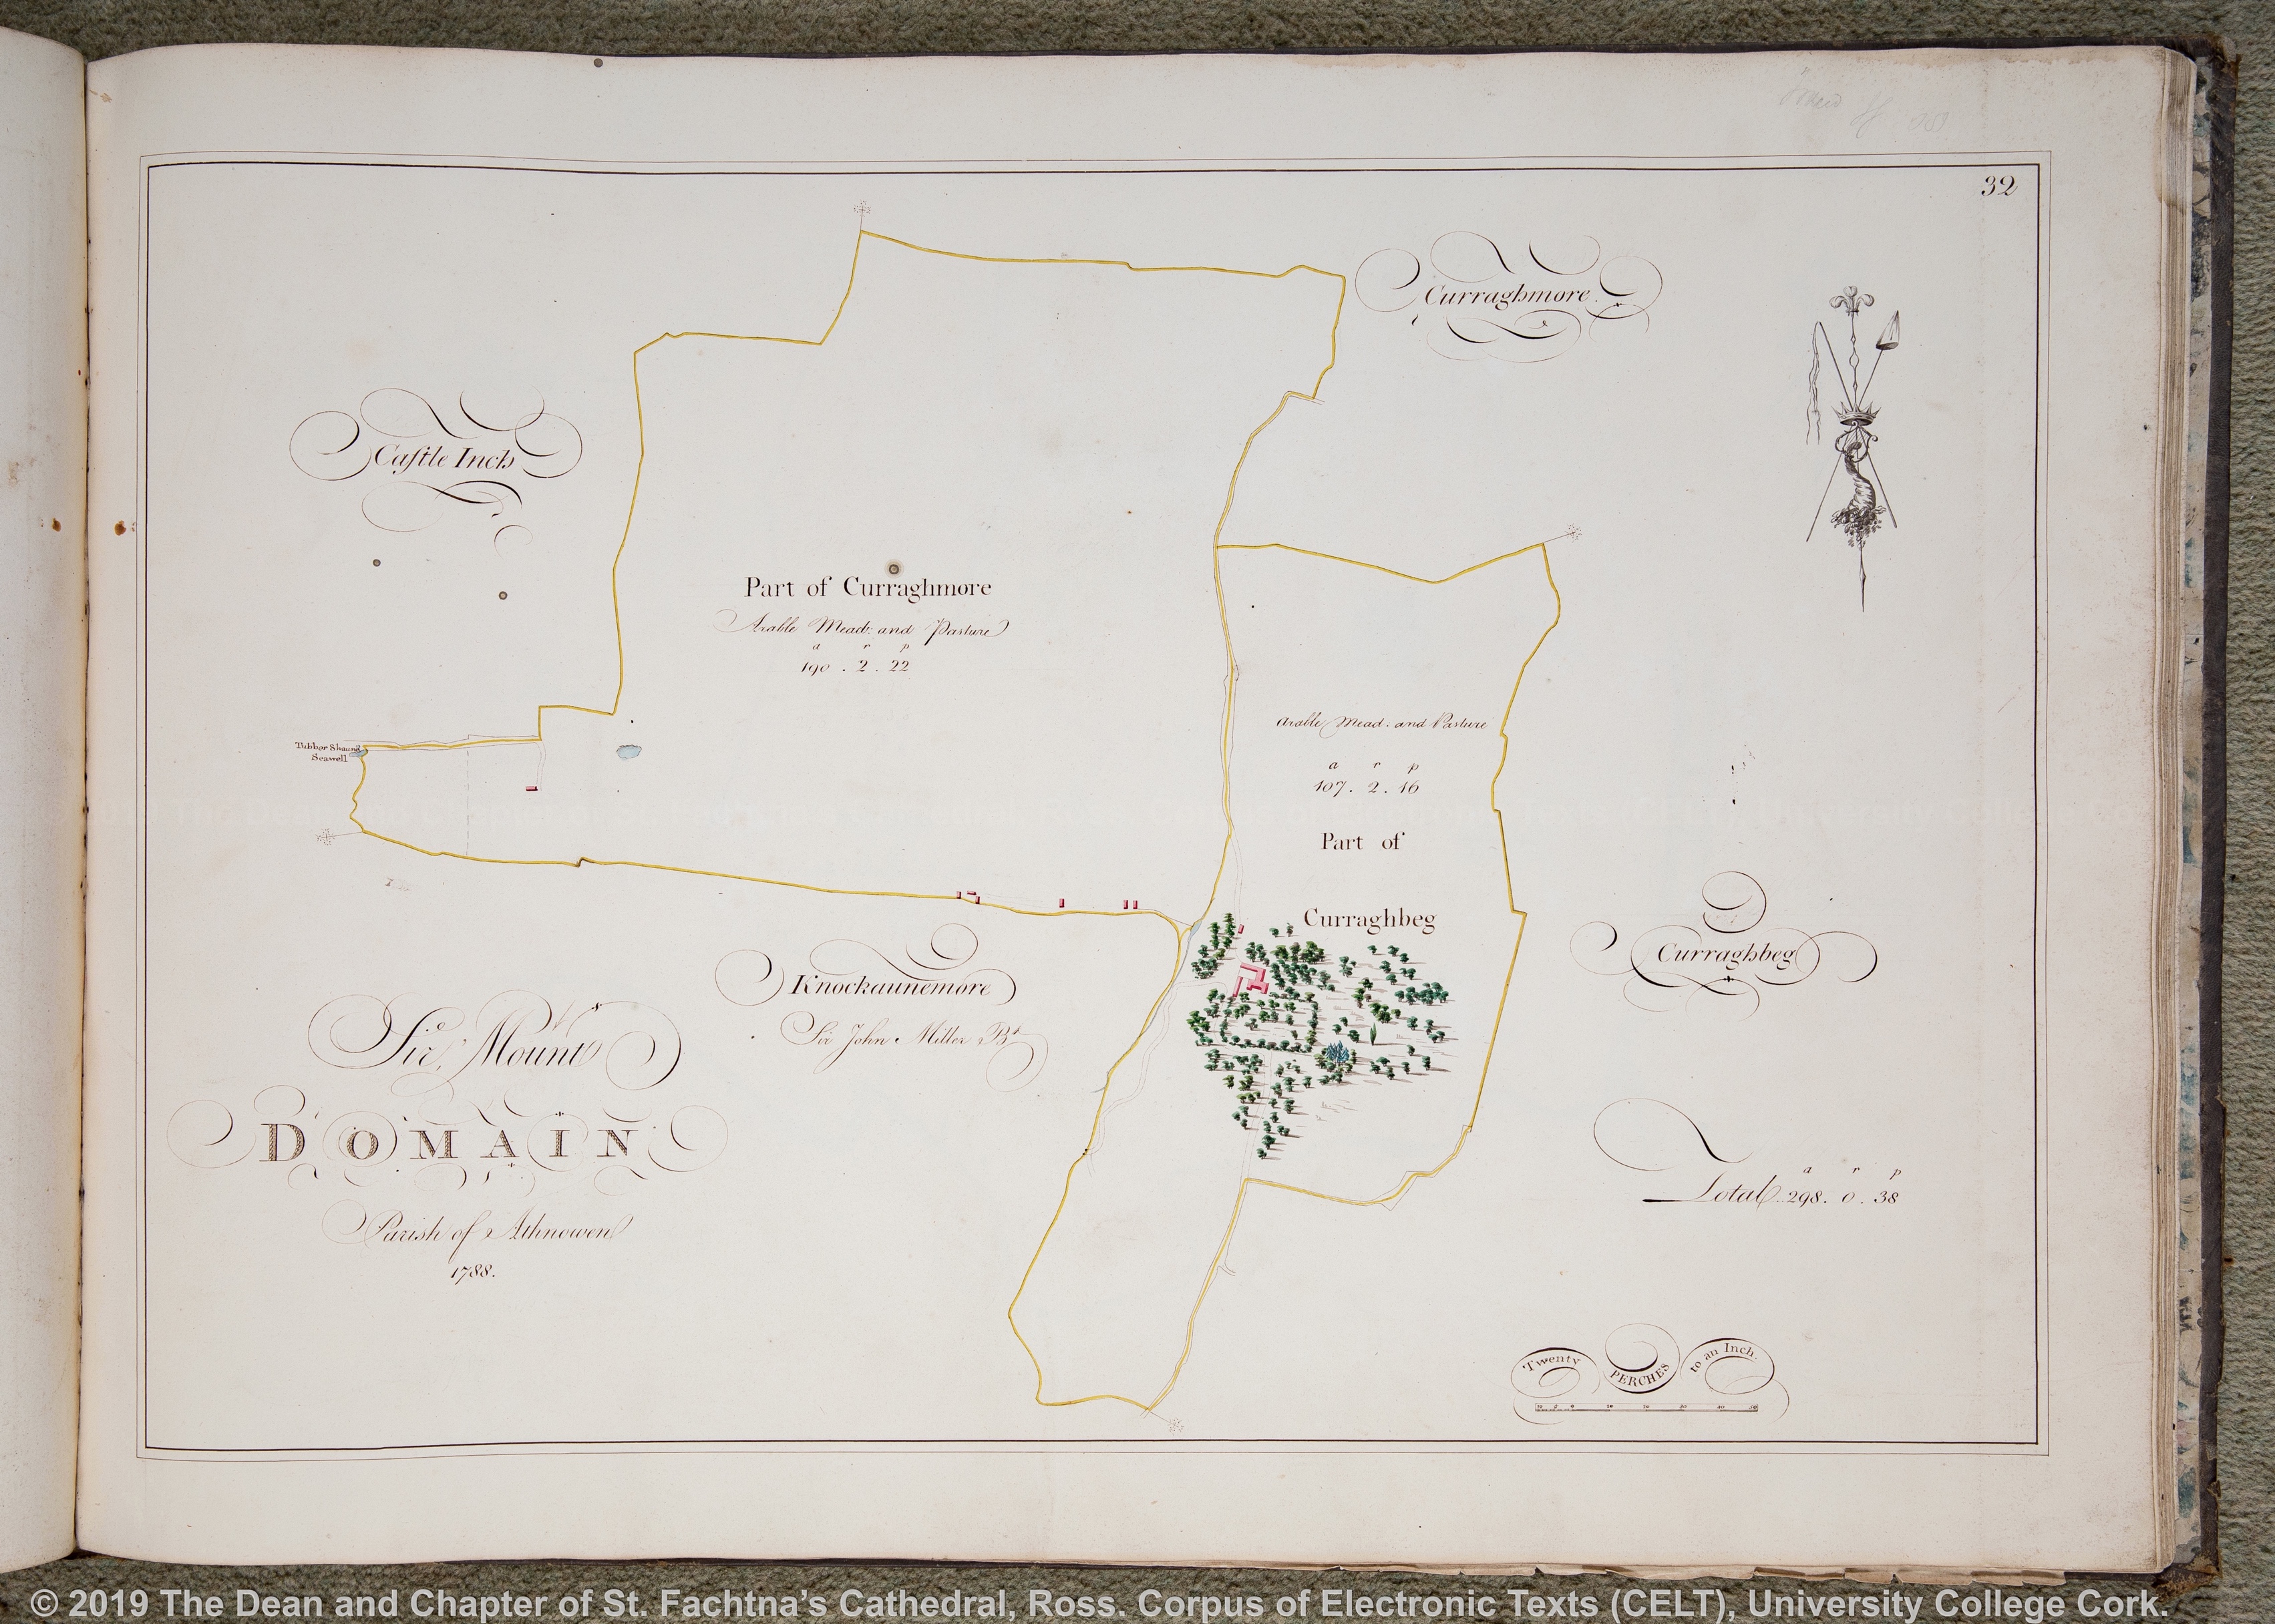 32
Curraghmore
Castle Inch
Part of Curraghmore
Arable Mead: and Pasture
a r p
190 . 2 . 22
Arable Mead: and Pasture
a r p
107 . 2 . 16
Part of
Curraghbeg
Tubber Shaune
Seawell
Curraghbeg
Knockaunemore
Sir John Miller Bt
Sir, Mount's
DOMAIN
Parish of Athnowen
1788.
a r p
Total 298 . 0 . 38
Twenty PERCHES to an Inch.
10 5 0 10 20 30 40 50
© 2019 The Dean and Chapter of St. Fachtna’s Cathedral, Ross. Corpus of Electronic Texts (CELT), University College Cork.